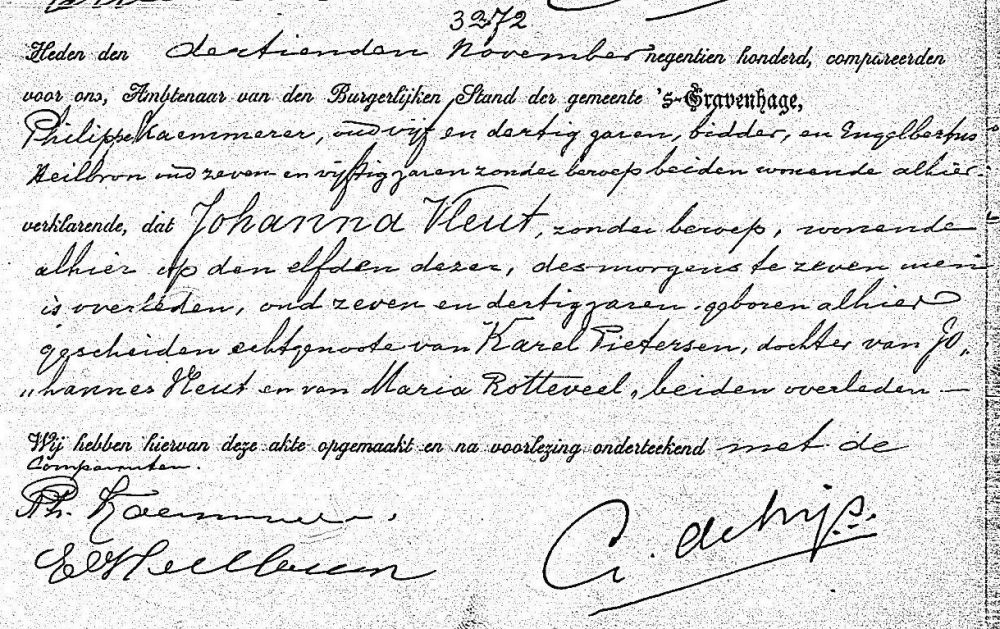 3272
Heden den dertienden November negentien honderd, compareerden
voor ons, Ambtenaar van den Burgerlijken Stand der gemeente 's-Gravenhage,
Philippe Kaemmerer, oud vijf en dertig jaren, bidder, en Engelbertus
Heilbron oud zeven en vijftig jaren zonder beroep beiden wonende alhier
verklarende, dat Johanna Vleut, zonder beroep, wonende
alhier op den elfden dezer, des morgens te zeven uren
is overleden, oud zeven en dertig jaren, geboren alhier
gescheiden echtgenoote van Karel Pietersen, dochter van Jo„
„hannes Vleut en van Maria Rotteveel, beiden overleden —
Wij hebben hiervan deze akte opgemaakt en na voorlezing onderteekend met de
Comparanten.
Ph. Kaemmerer.
E Heilbron